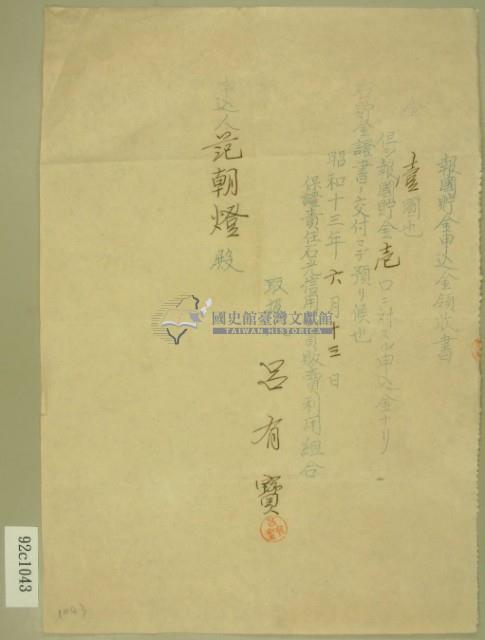 報國貯金申込金領收書
金壹圓也
但シ報國貯金壱口ニ対スル申込金ナリ
右貯金證書ノ交付マデ預リ候也
昭和十三年六月十三日
保證責任石光信用購買販賣利用組合
取扱
呂有寶
申込人 范朝燈 殿
國史館臺灣文獻館
TAIWAN HISTORICA
92c1043
1043